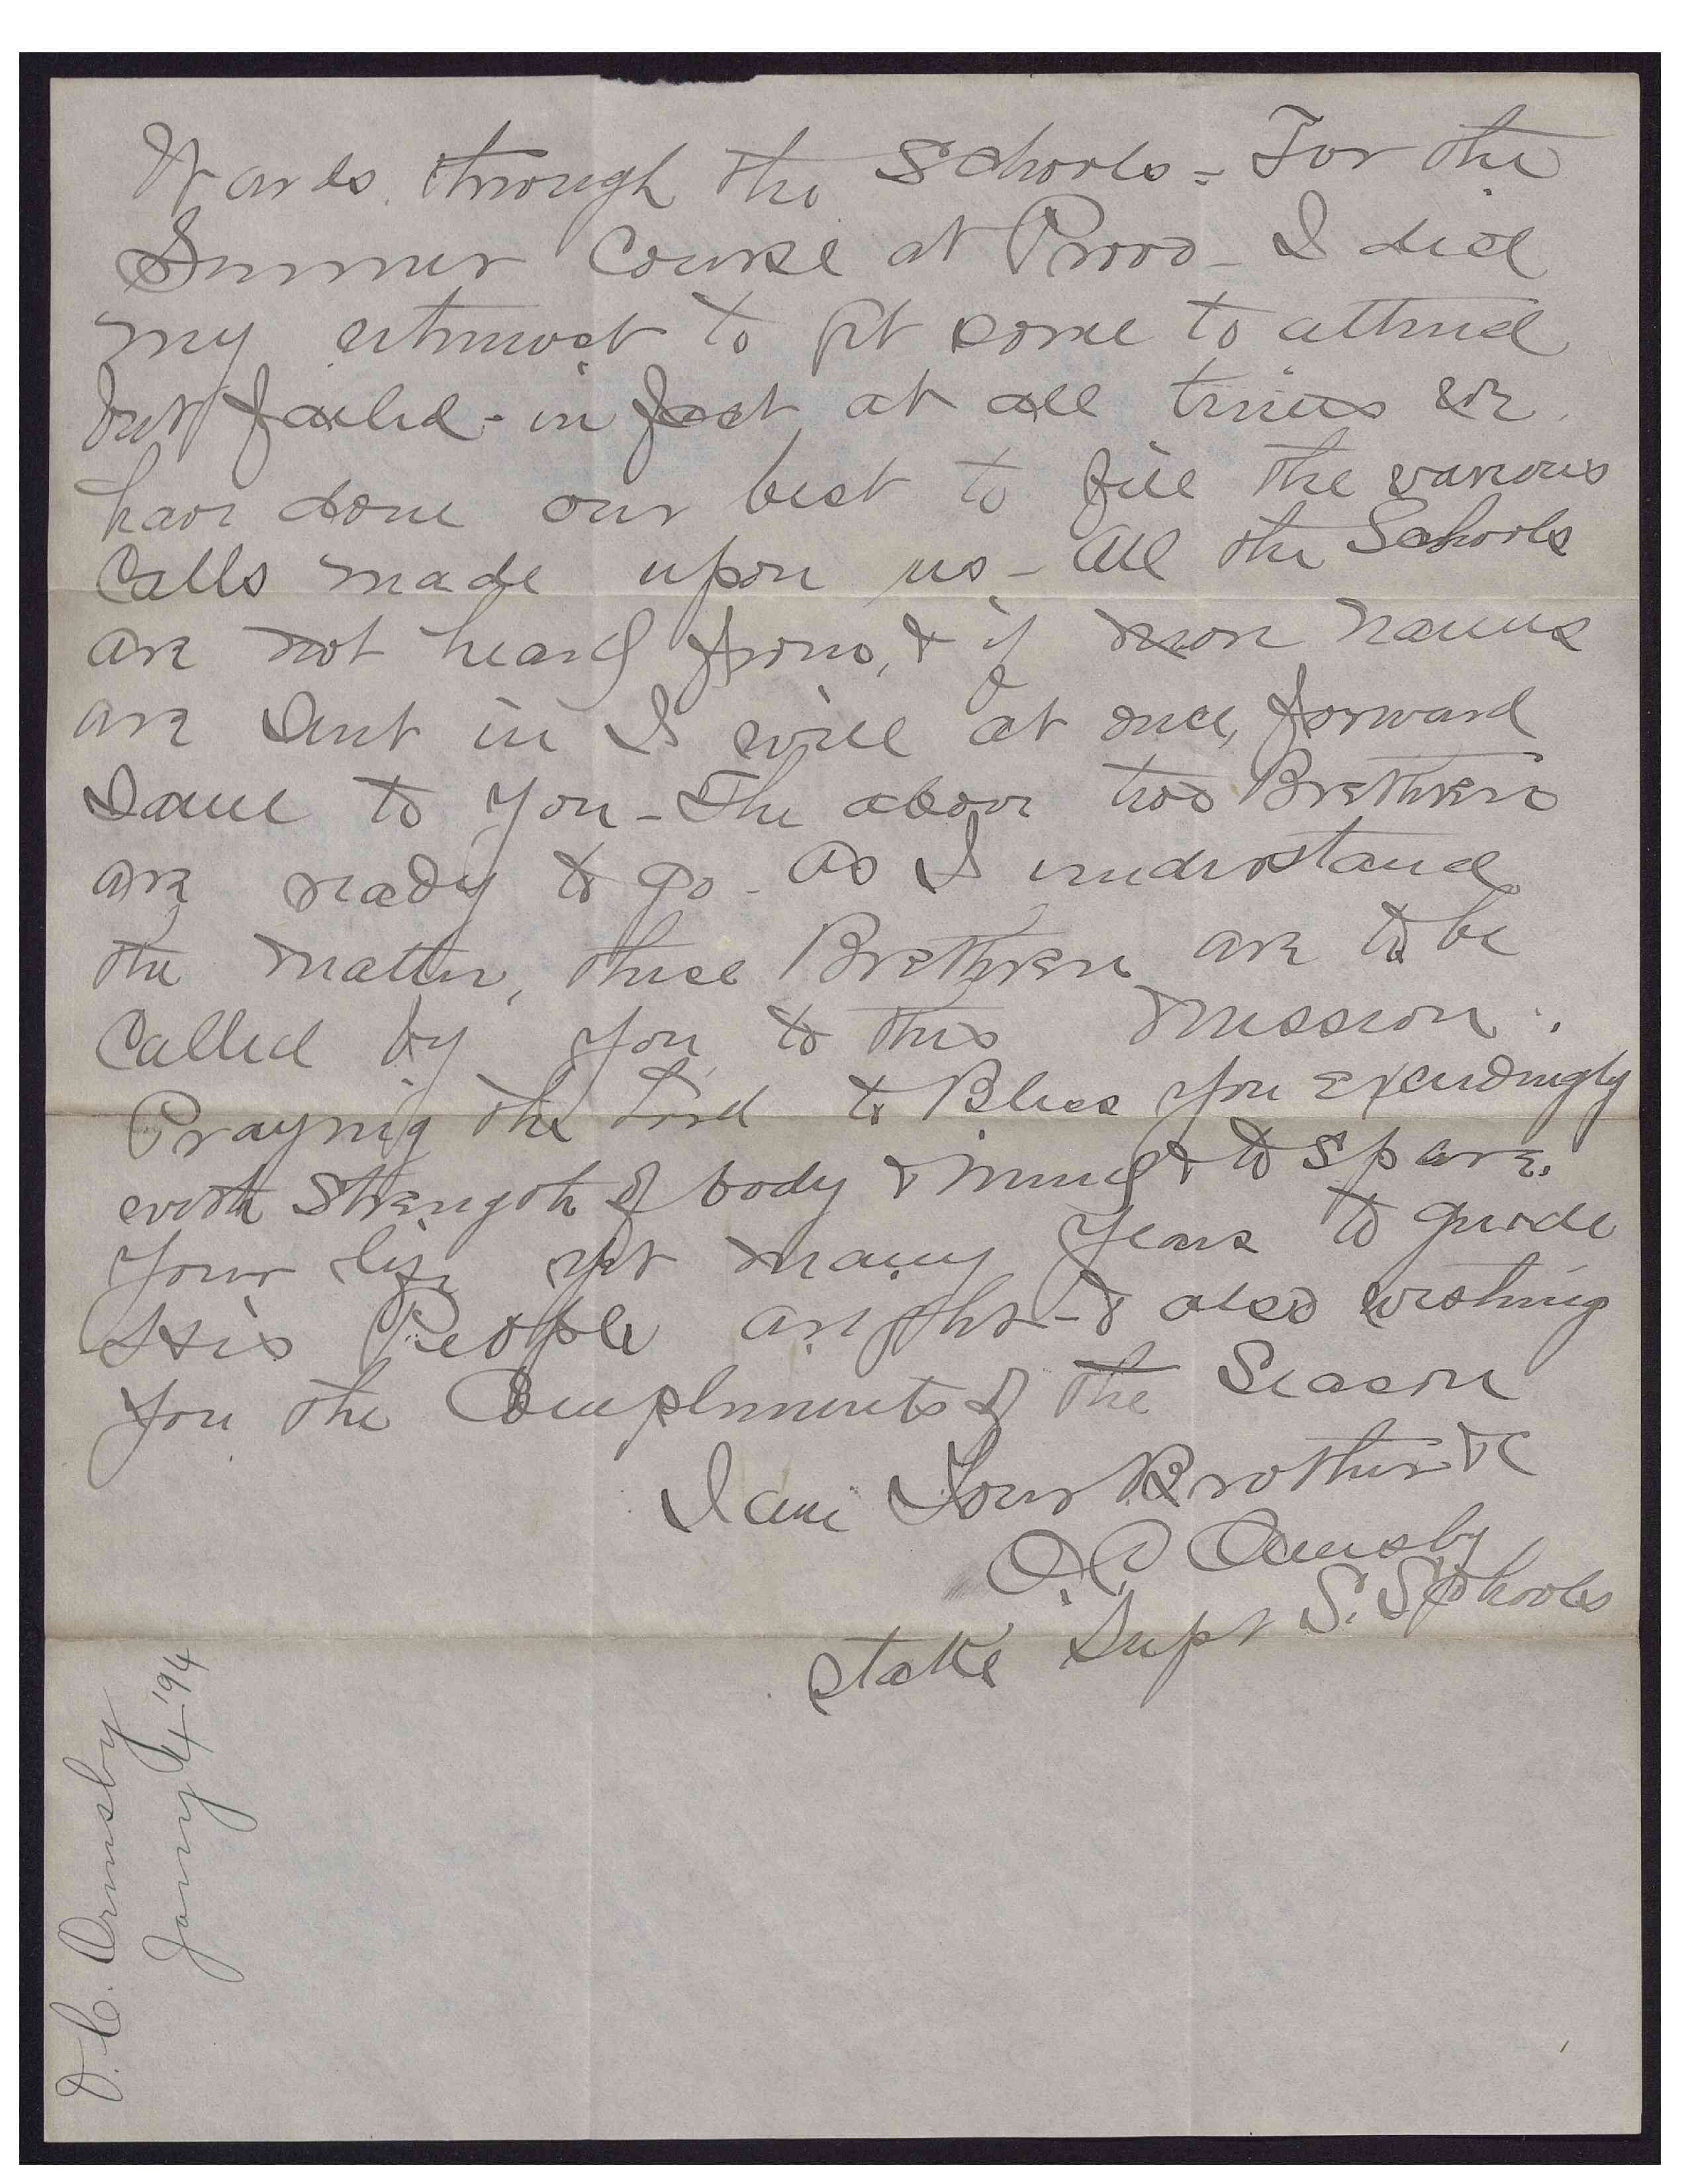 Wards through the Schools = For the
Summer Course at Provo - I did
my utmost to get some to attend
but failed - in fact at all times we
have done our best to fill the various
Calls made upon us - All the Schools
are not heard from, & if more names
are sent in I will at once, forward
Same to you - The above two Brethren
are ready to go - As I understand
the matter, these Brethren are to be
Called by you to this mission.
Praying the Lord to Bless you exceedingly
with Strength of body & mind & to spare
your life yet many years to guide
His People aright - & also wishing
you the Compliments of the Season
I am Your Brother &c
O. C. Ormsby
Stake Supt S. Schools
O. C. Ormsby
Jany 4 '94